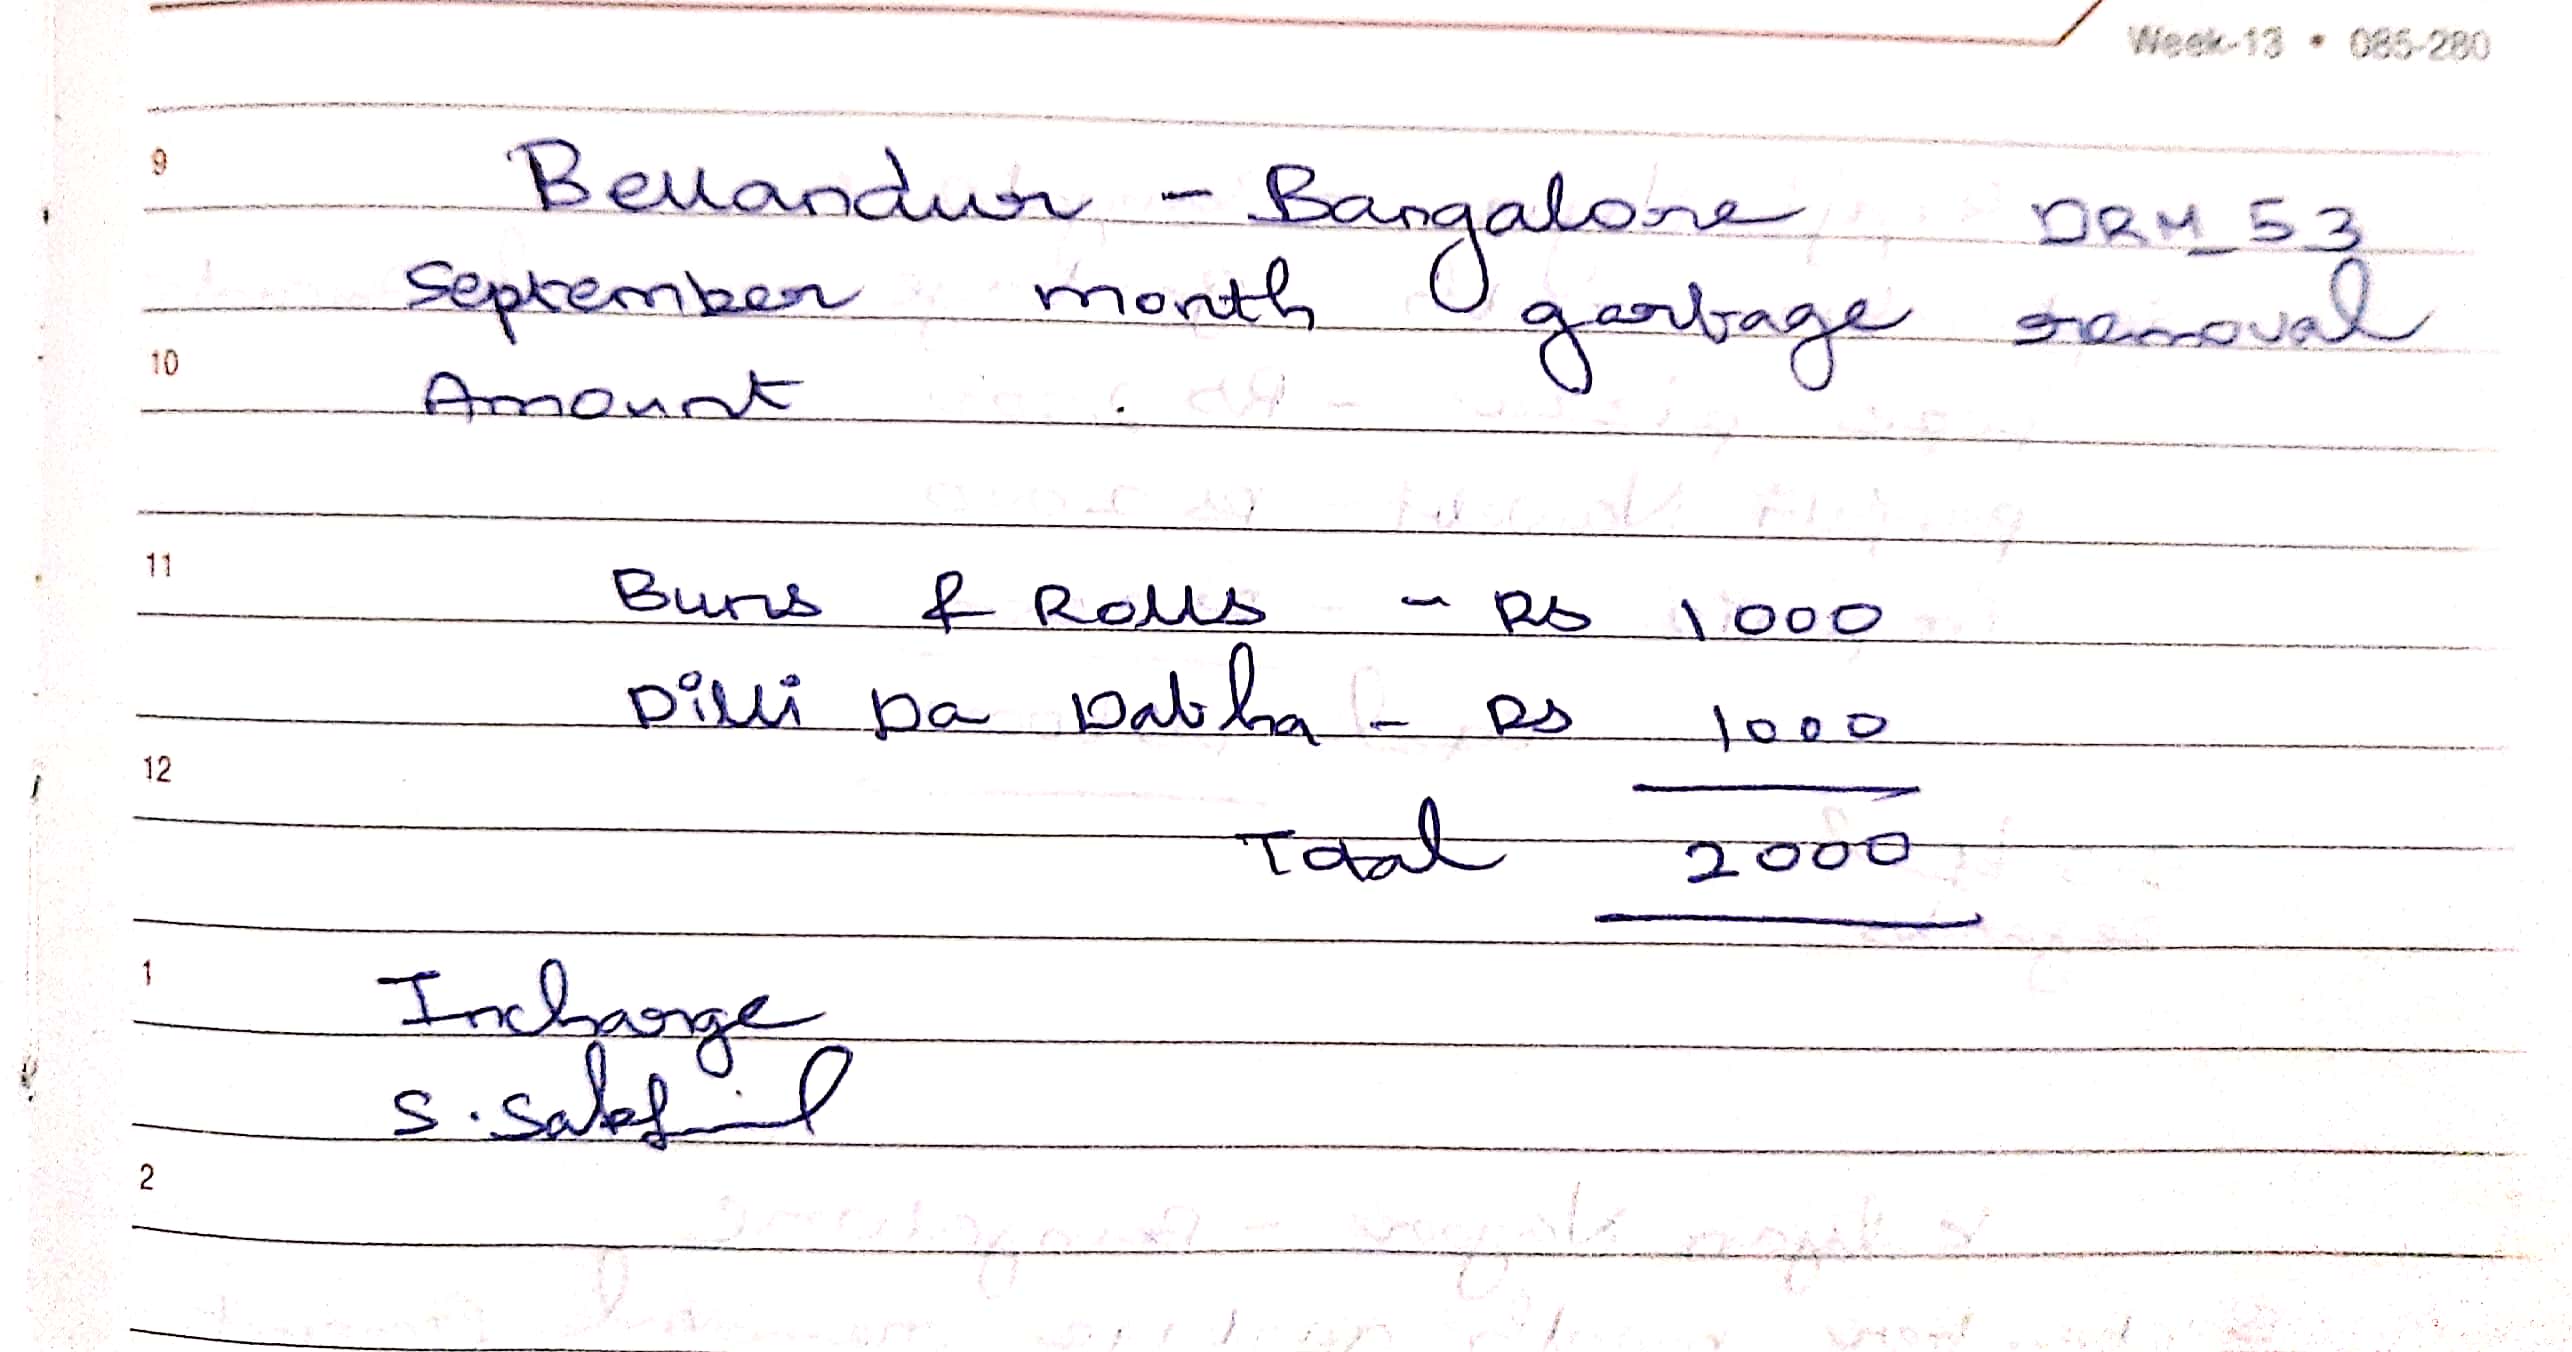 Week-13 • 085-280
9
Bellandur - Bangalore DRM_53
September month garbage removal
10
Amount
11
Buns & Rolls - Rs 1000
Dilli Da Dabha - Rs 1000
12
Total 2000
1
Incharge
S.
2